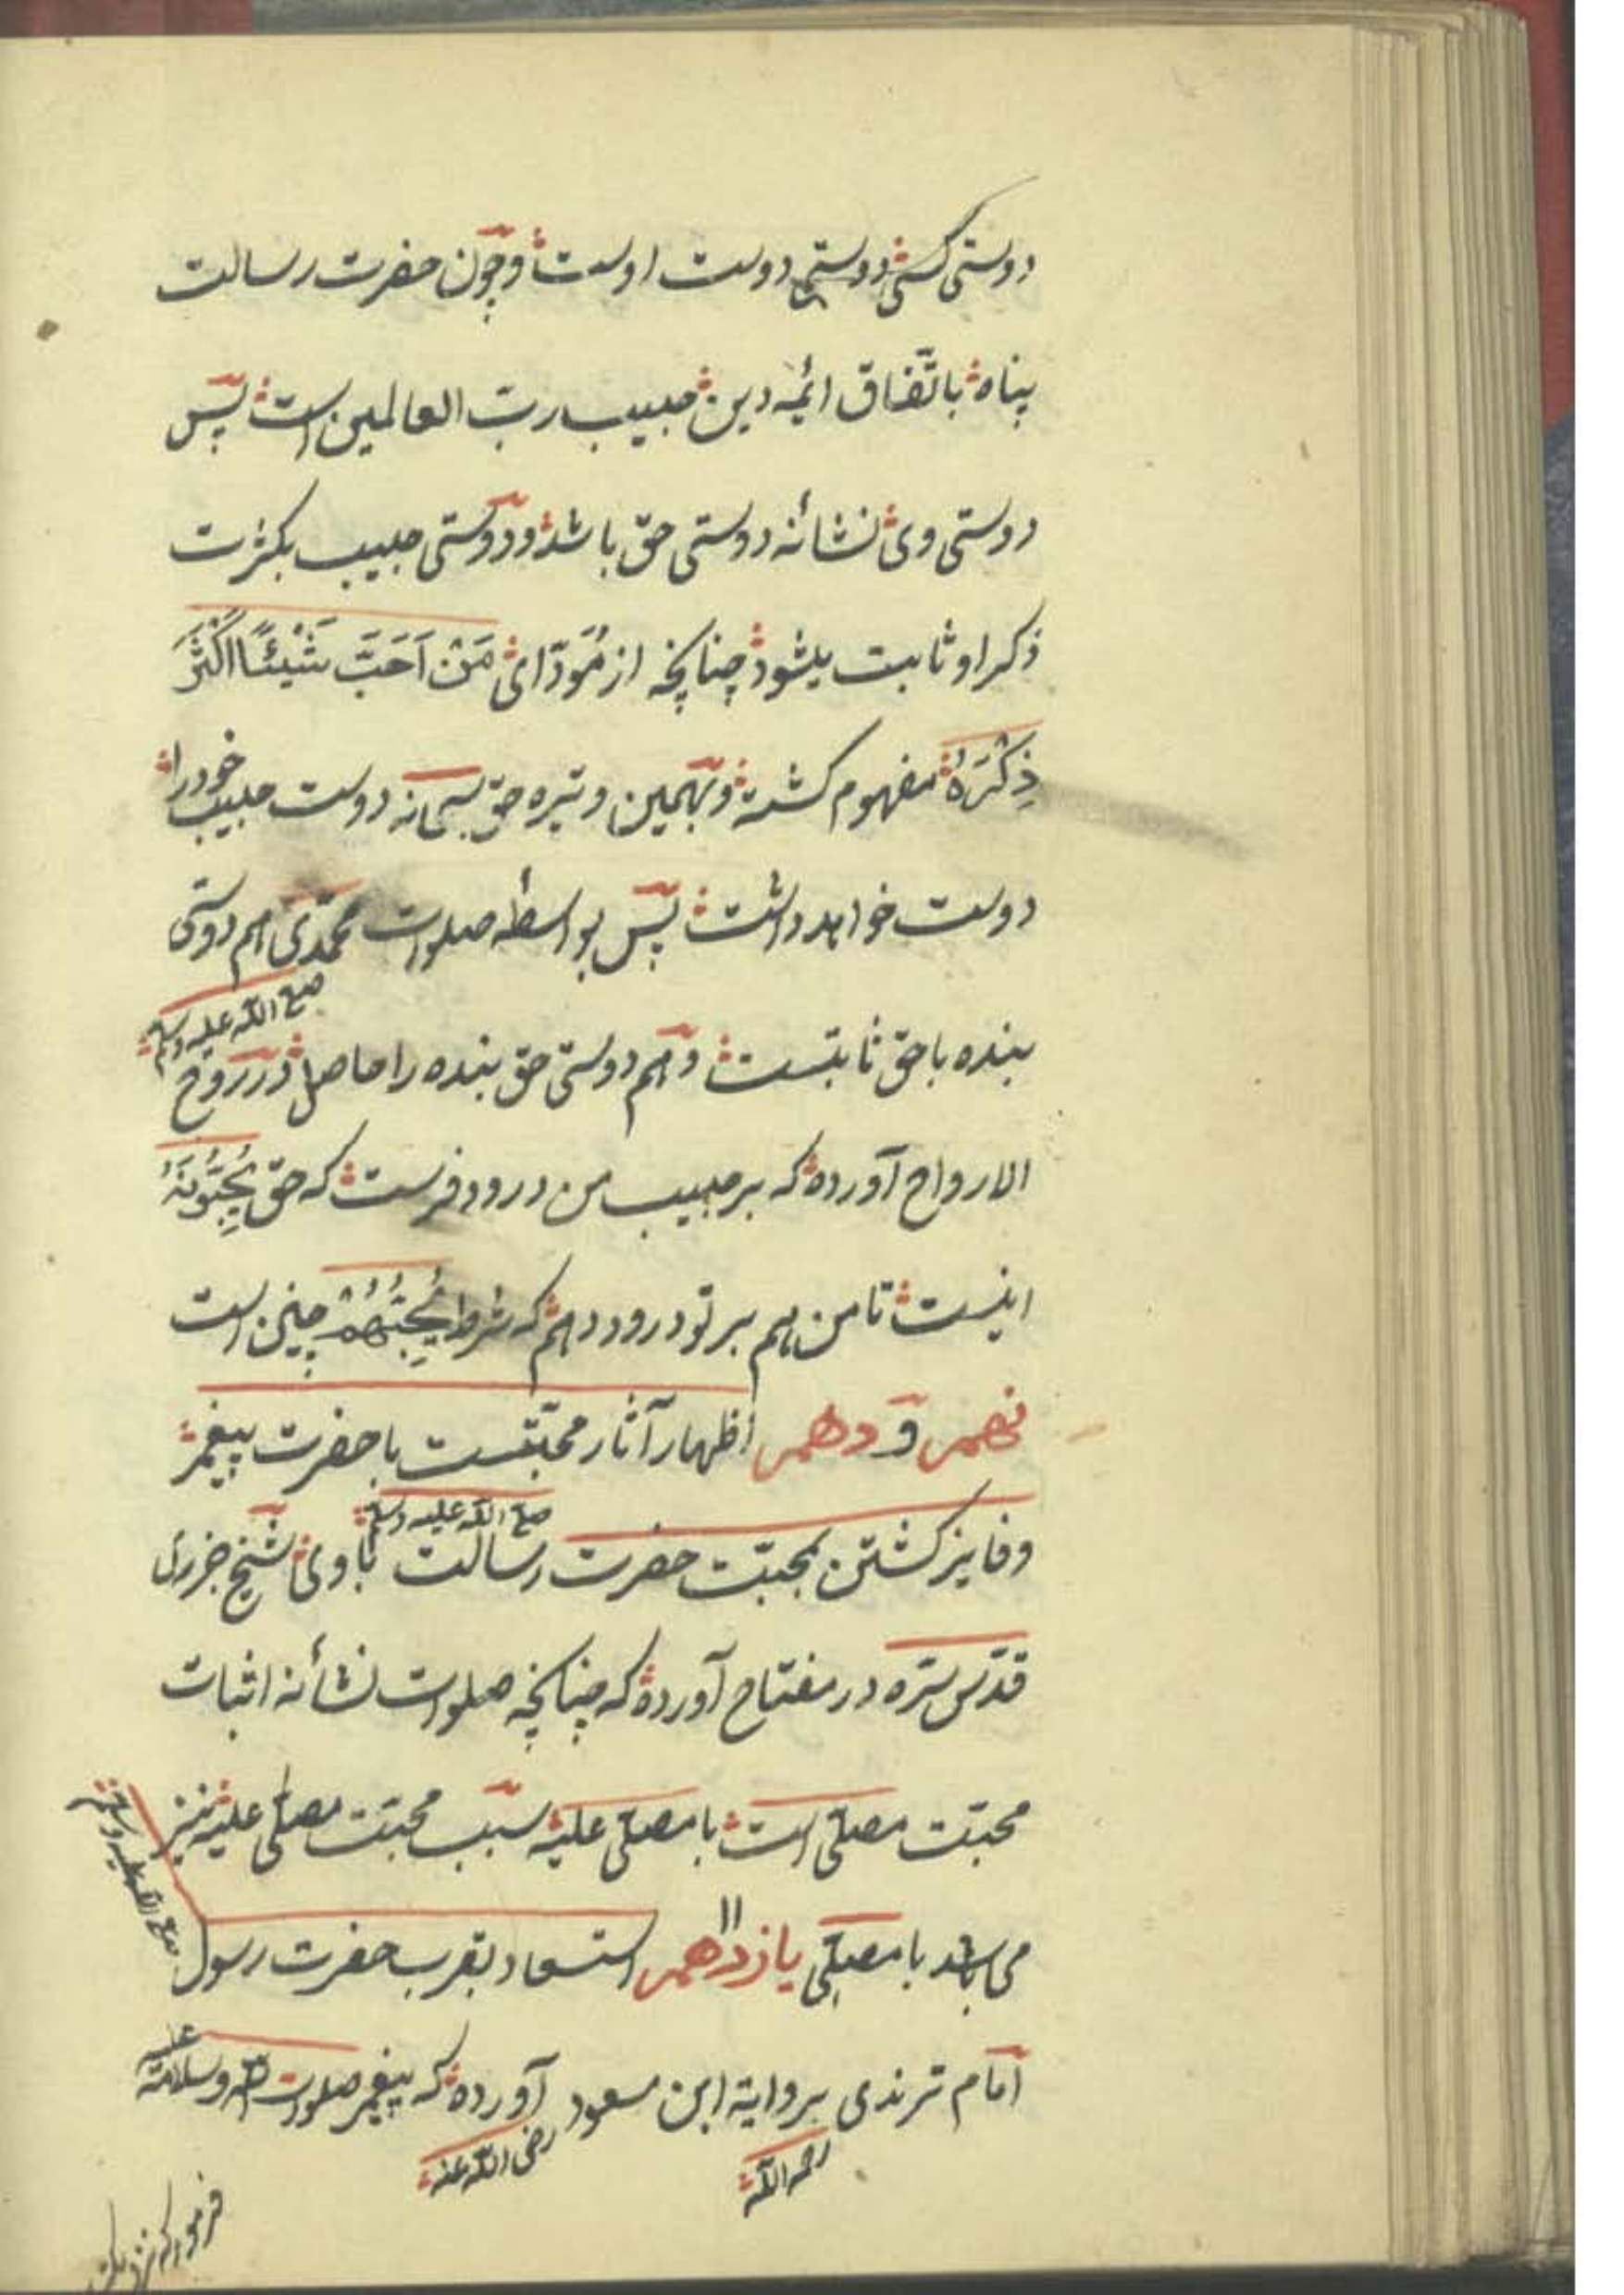 دوستی کسی دوستی دوست اوست و چون حضرت رسالت
پناه باتّفاق ائمه دین حبیب ربّ العالمین است پس
دوستی وی نشانه دوستی حق باشد و دوستی حبیب بکثرت
ذکر او ثابت میشود چنانچه از مُودّای مَنْ اَحَبَّ شَیْئًا اَکْثَرَ
ذِکْرَهُ مفهوم کشته و بهمین وتیره حق سبحانه دوست حبیب خود را
دوست خواهد داشت پس بواسطه صلوات محمّدی هم دوستی
صلی الله علیه وسلم
بنده با حق ثابتست و هم دوستی حق بنده را حاصل در روح
الارواح آورده که بر حبیب من درود فرست که حق یُحِبُّونَهُ
اینست تا من هم بر تو درود دهم که شرط یُحِبُّهُمْ چنین است
نهم و دهم اظهار آثار محبّتست با حضرت پیغمبر
صلی الله علیه وسلم
و فایز کشتن بمحبّت حضرت رسالت با وی شیخ جزری
قدّس سرّه در مفتاح آورده که چنانچه صلوات نشانه اثبات
محبّت مصلّی است با مصلّی علیه سبب محبّت مصلّی علیه نیز
می باشد با مصلّی یازدهم ۱۱ استسعاد بقرب حضرت رسول
صلی الله علیه وسلم
امام ترمذی بروایة ابن مسعود آورده که پیغمبر صلوات الله وسلامه علیه
رحمه الله رضی الله عنه
فرمود که نزدیکت